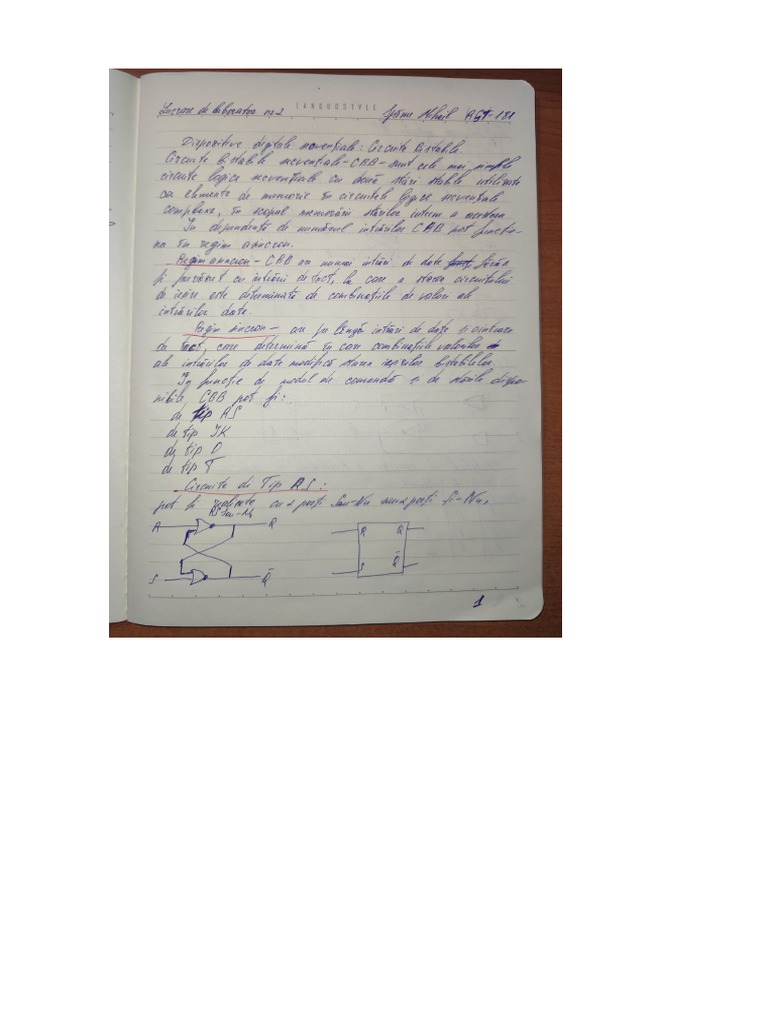 Lucrare de laborator nr 2 LANGUOSTYLE Mihail
Dispozitive digitale secvențiale: Circuite Bistabile
Circuite Bistabile secvențiale - CBB - sunt cele mai simple
circuite logice secvențiale cu două stări stabile utilizate
ca elemente de memorie în circuitele logice secvențiale
complexe, în scopul memorării stărilor interne a acestora
În dependență de numărul intrărilor CBB pot funcțio-
na în regim asincron.
Regim asincron - CBB au numai intrări de date
și cu intrării de tact, la care a starea circuitului
de ieșire este determinată de combinațiile de valori ale
intrărilor date.
Regim sincron - au pe lîngă intrări de date și intrare
de tact, care determină în care combinațiile valorilor
ale intrărilor de date modifică starea ieșirilor bistabilelor.
În funcție de modul de comandă și de stările dispo-
nibile CBB pot fi:
de tip RS
de tip JK
de tip D
de tip T
Circuite de Tip RS:
pot fi cu 2 porți Sau-Nu sau 2 porți Și-Nu,
RS Sau-Nu
R Q R Q
S Q̄ S Q̄
1